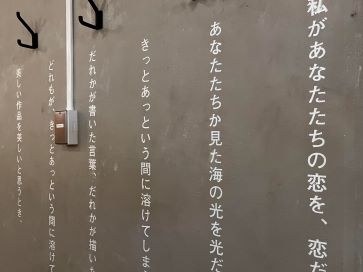 私があなたたちの恋を、恋だ
あなたたちが見た海の光を光だ
きっとあっという間に溶けてしま
だれかが書いた言葉、だれかが描いた
どれもが、きっとあっという間に溶けて
美しい作品を美しいと思うとき、